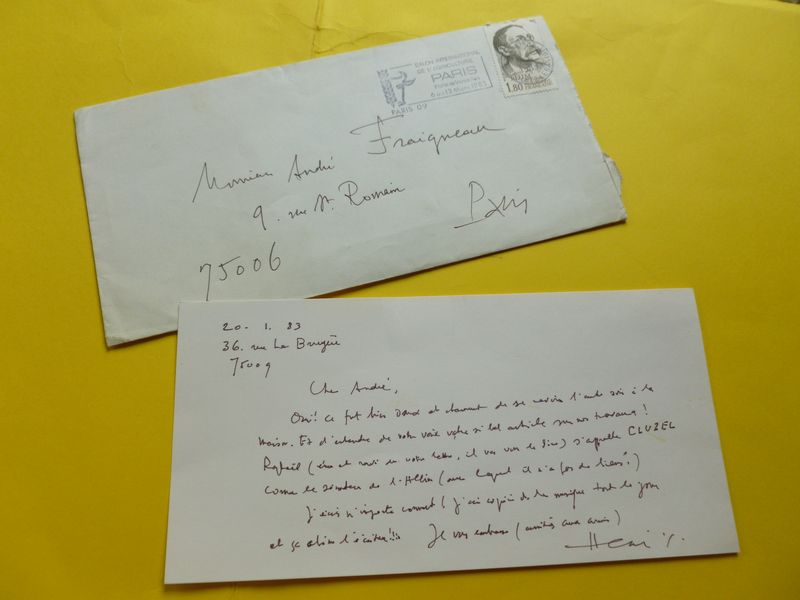 SALON INTERNATIONAL
DE L'AGRICULTURE
PARIS
6 au 13 Mars 1983
PARIS 09
1,80
Monsieur André Fraigneau
9. rue St. Romain
Paris
75006
20. 1. 83
36. rue La Bruyère
75009
Cher André,
Oui! ce fut bien doux et charmant de se revoir l'autre soir à la
maison. Et d'entendre de votre voix votre si bel article sur nos travaux!
Raphaël (ému et ravi de votre lettre, il va vous le dire) s'appelle CLUZEL
comme le sénateur de l'Allier (avec lequel il n'a pas de liens!)
J'écris n'importe comment! j'ai copié de la musique tout le jour
et ça abîme l'écriture!!! Je vous embrasse (amitiés aux amis)
Henri S.